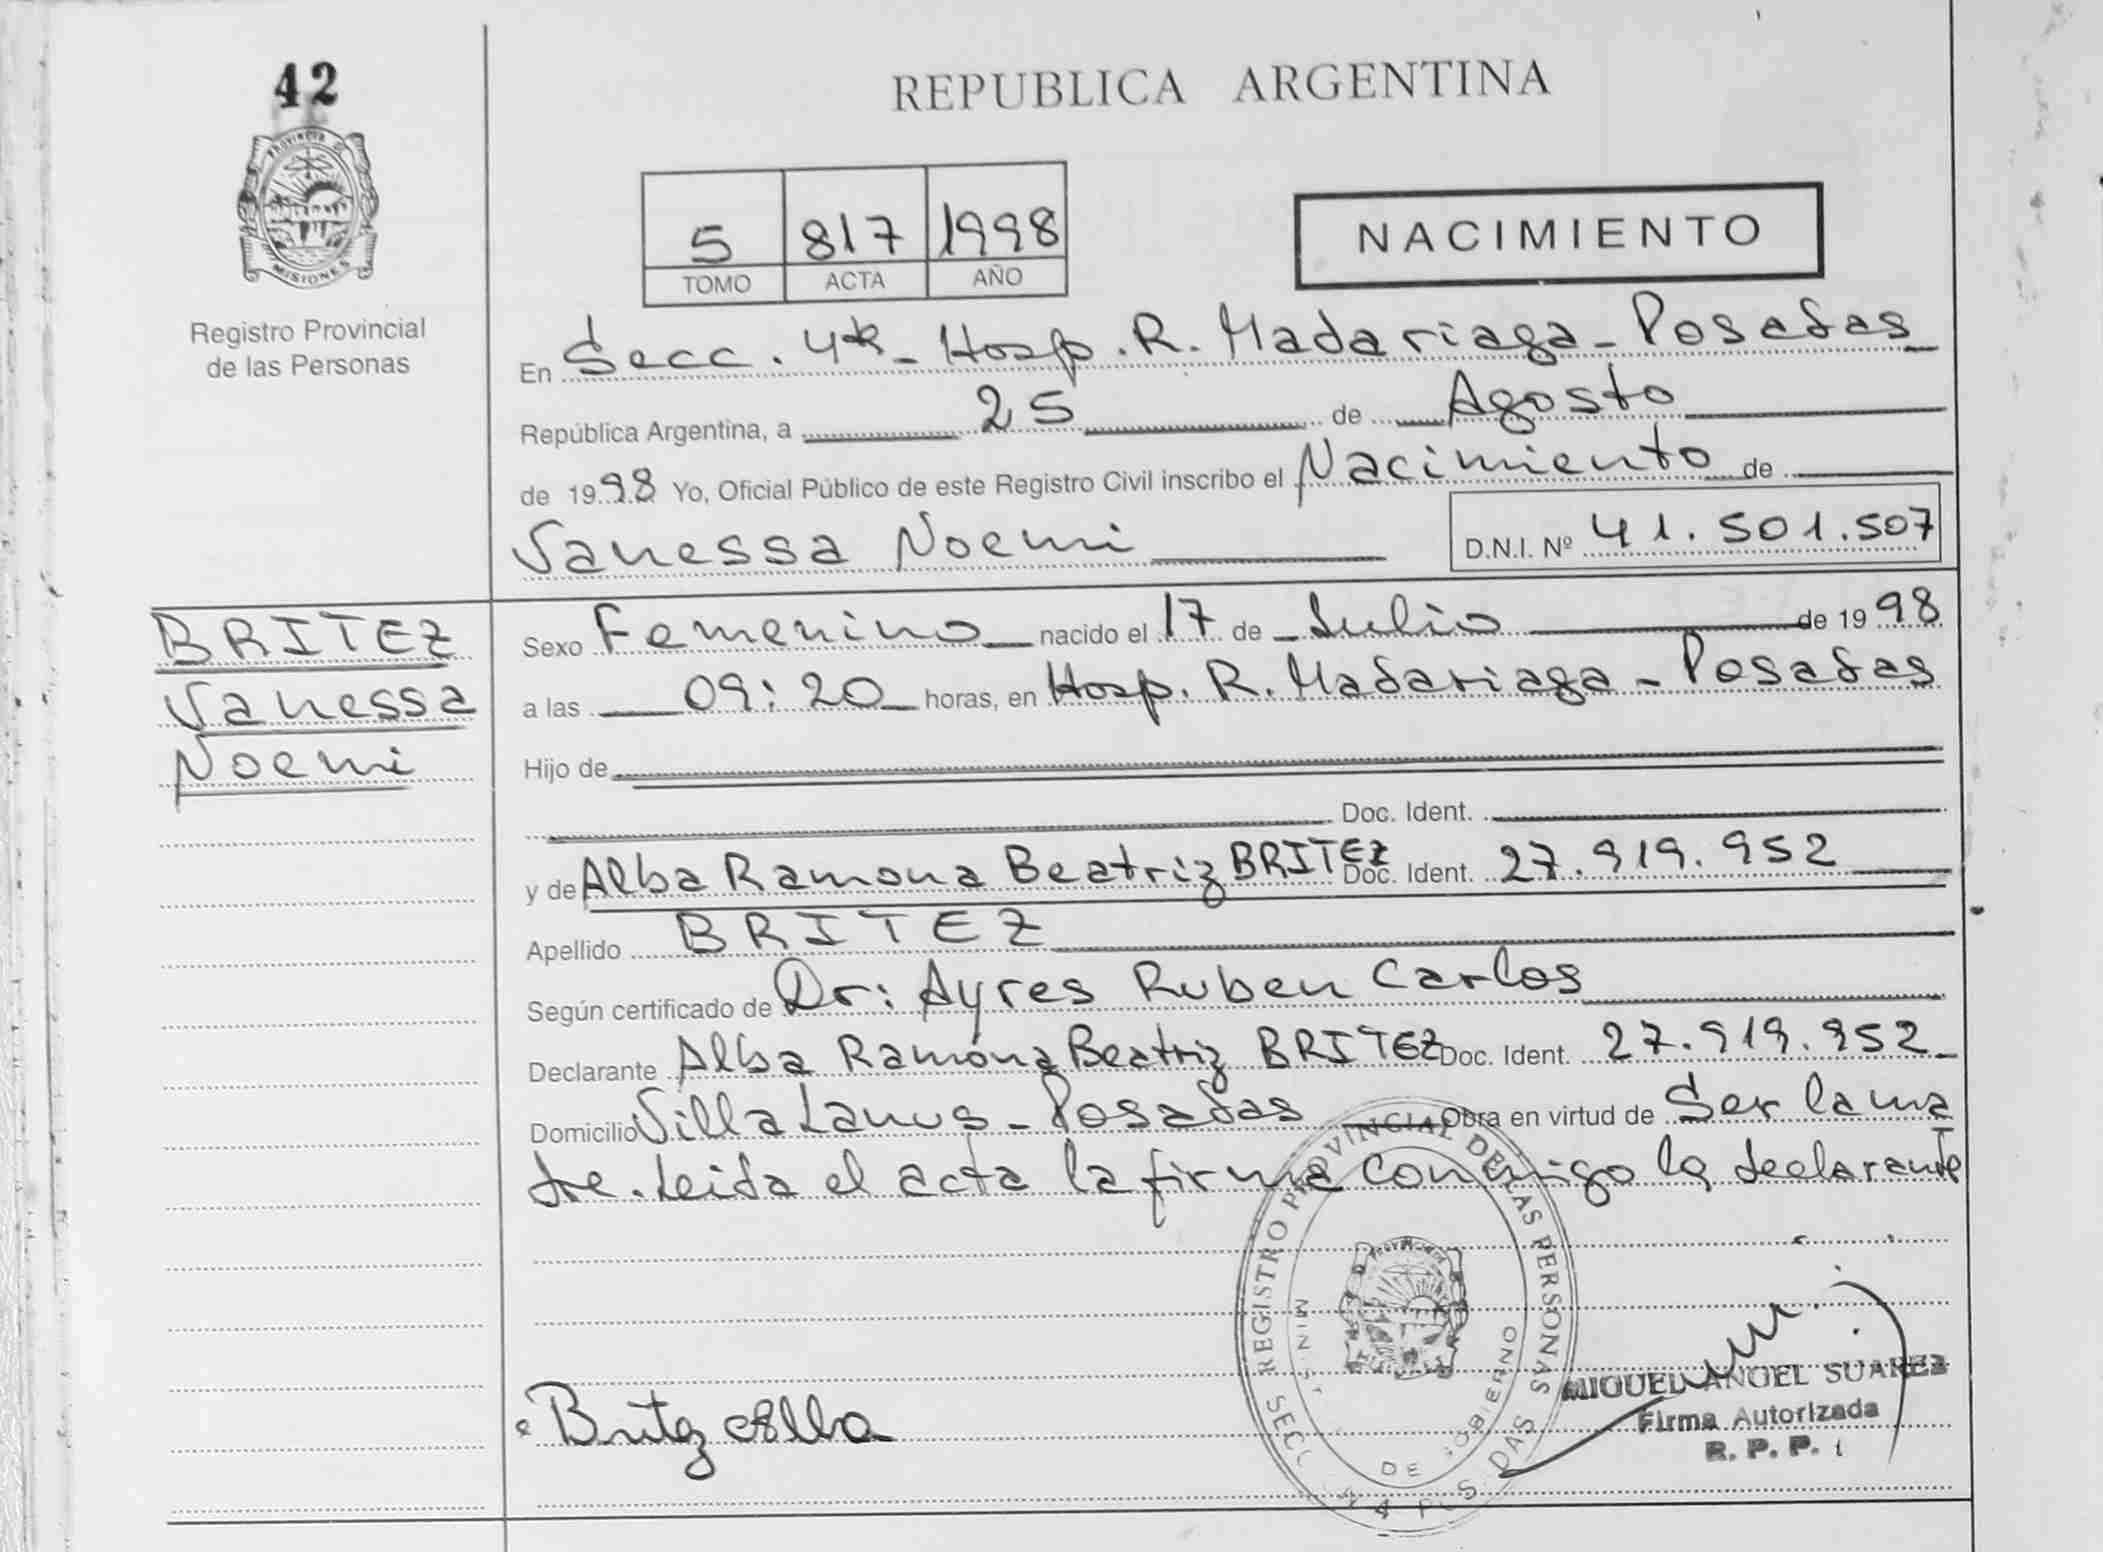 42
PROVINCIA DE
MISIONES
Registro Provincial
de las Personas
REPUBLICA ARGENTINA
5 817 1998
TOMO ACTA AÑO
NACIMIENTO
En Secc. 4ta - Hosp. R. Madariaga - Posadas
República Argentina, a 25 de Agosto
de 1998 Yo, Oficial Público de este Registro Civil inscribo el Nacimiento de
Vanessa Noemi D.N.I. Nº 41.501.507
BRITEZ
Vanessa
Noemi
Sexo Femenino nacido el 17 de Julio de 1998
a las 09:20 horas, en Hosp. R. Madariaga - Posadas
Hijo de
Doc. Ident.
y de Alba Ramona Beatriz BRITEZ Doc. Ident. 27.919.952
Apellido BRITEZ
Según certificado de Dr: Ayres Ruben Carlos
Declarante Alba Ramona Beatriz BRITEZ Doc. Ident. 27.919.952
Domicilio Villa Lanus - Posadas Obra en virtud de Ser la ma
dre. Leida el acta la firma conmigo la declarante
REGISTRO PROVINCIAL DE LAS PERSONAS
DE GOBIERNO
Britez Alba
MIGUEL ANGEL SUAREZ
Firma Autorizada
R. P. P.